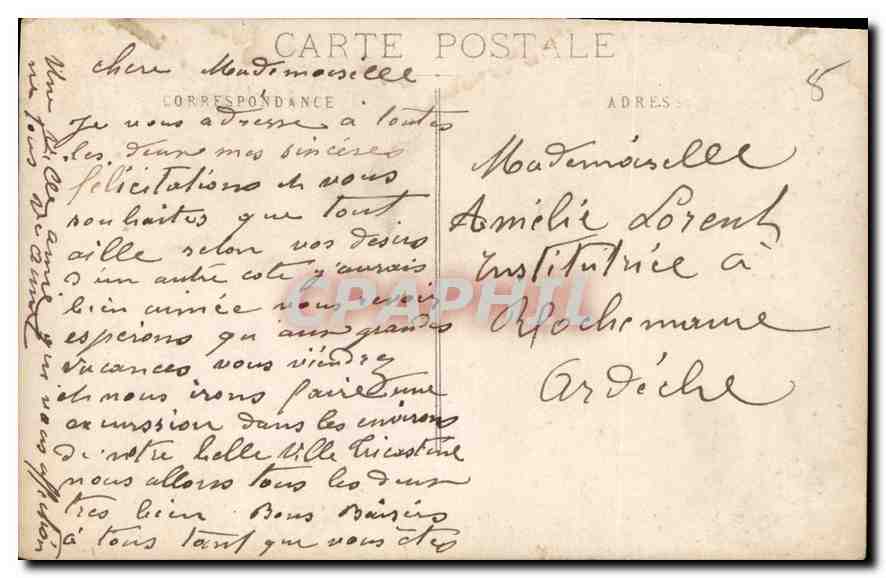 CARTE POSTALE
CORRESPONDANCE
ADRESS
8
chere Mademoiselle
Je vous adresse à toutes
les deux mes sincères
félicitations et vous
souhaites que tout
aille selon vos desirs
d'un autre coté j'aurais
bien aimée vous revoir
esperons qu'aux grandes
vacances vous viendrez
et nous irons faire une
excurssion dans les environs
de notre belle Ville Tricastine
nous allons tous les deux
tres bien Bons Baisers
à tous tant que vous êtes
Une vieille amie qui vous affection
ne tous
Mademoiselle
Amélie Lorent
Institutrice à
Rochemaure
Ardèche
CPAPHIL